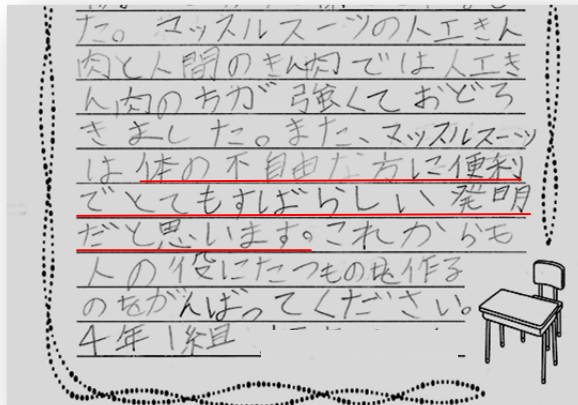 た。マッスルスーツの人工きん
肉と人間のきん肉では人工き
ん肉の方が強くておどろ
きました。また、マッスルスーツ
は体の不自由な方に便利
でとてもすばらしい発明
だと思います。これからも
人の役にたつものを作る
のをがんばってください。
4年1組